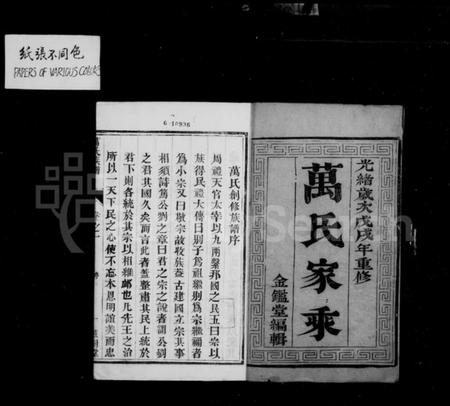 紙張不同色
PAPERS OF VARIOUS COLORS
光緒歲次戊戌年重修
萬氏家乘
金鑑堂編輯
萬氏創修族譜序
周禮天官太宰以九兩繫邦國之民五曰宗以
族得民禮大傳曰別子為祖繼別為宗繼禰者
為小宗又曰敬宗故收族蓋古建國立宗其事
相須詩篤公劉之章曰君之宗之說者謂公劉
之君其國久矣而言此者蓋整肅其民上統於
君下則各統於其宗以相維卹也凡先王之治
所以一天下民之心使不忘本恩明誼美而忠